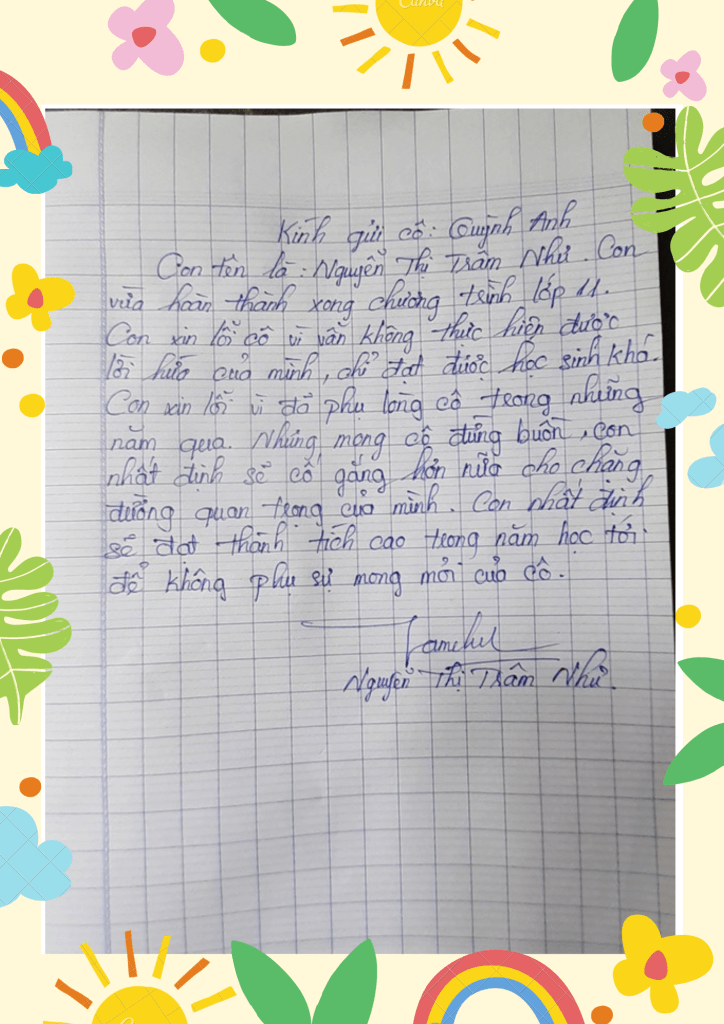 Canva
Kính gửi cô: Quỳnh Anh
Con tên là: Nguyễn Thị Trâm Như. Con
vừa hoàn thành xong chương trình lớp 11.
Con xin lỗi cô vì vẫn không thực hiện được
lời hứa của mình, chỉ đạt được học sinh khá.
Con xin lỗi vì đã phụ lòng cô trong những
năm qua. Nhưng mong cô đừng buồn, con
nhất định sẽ cố gắng hơn nữa cho chặng
đường quan trọng của mình. Con nhất định
sẽ đạt thành tích cao trong năm học tới
để không phụ sự mong mỏi của cô.
Nguyễn Thị Trâm Như.